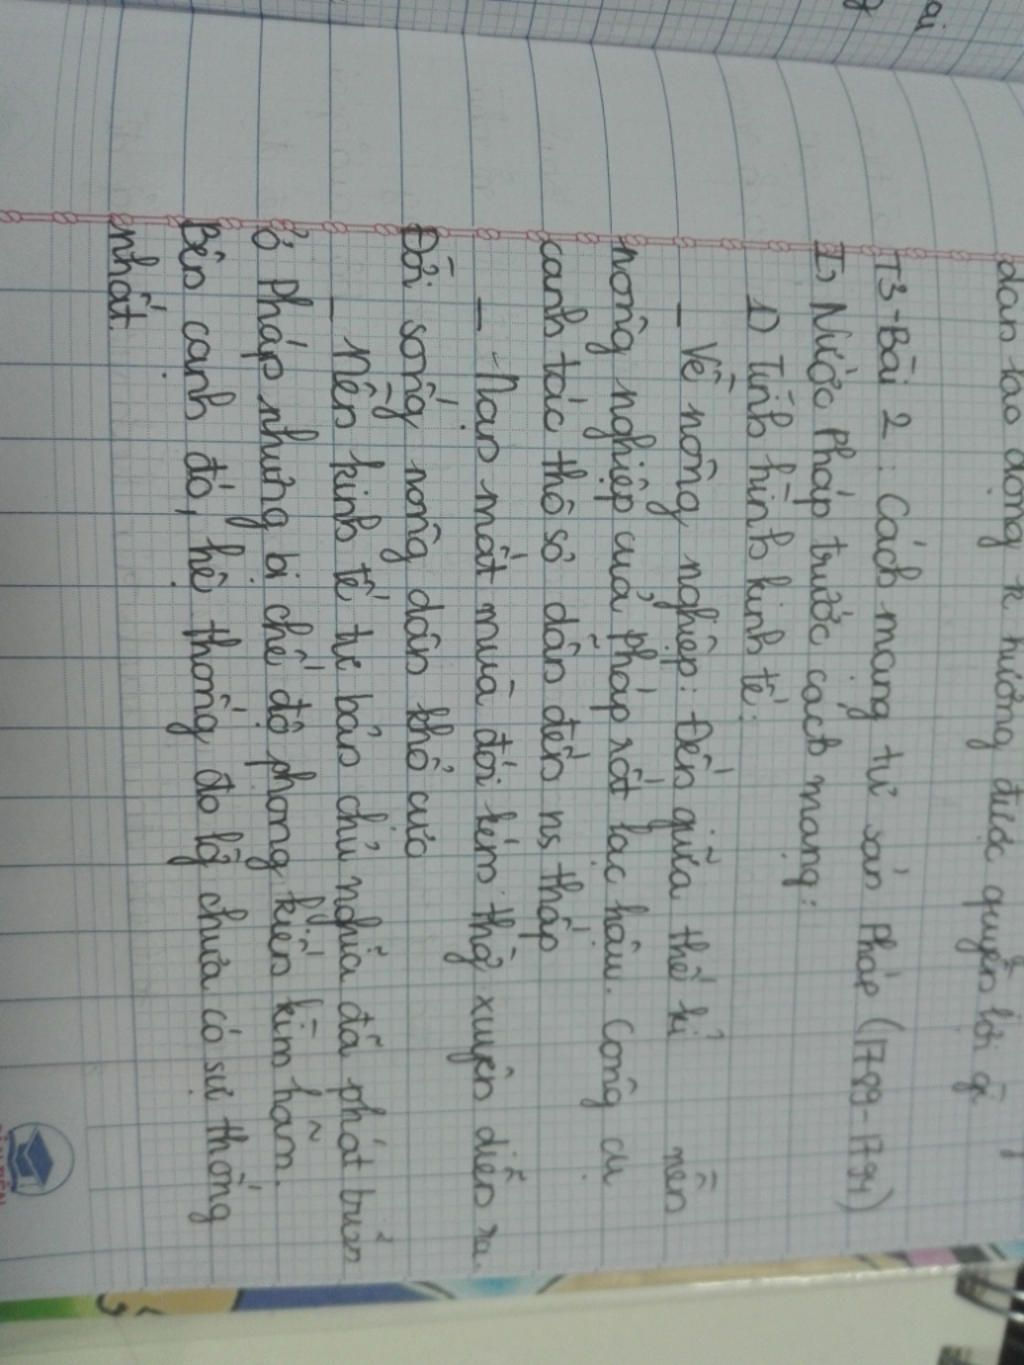 dân lao động k hưởng được quyền lợi gì
T3-Bài 2: Cách mạng tư sản Pháp (1789-1794)
I) Nước Pháp trước cách mạng:
1) Tình hình kinh tế:
- Về nông nghiệp: Đến giữa thế kỉ nền
nông nghiệp của pháp rất lạc hậu. Công cụ
canh tác thô sơ dẫn đến ns thấp
- Nạn mất mùa đói kém thg xuyên diễn ra.
Đời sống nông dân khổ cực
- Nền kinh tế tư bản chủ nghĩa đã phát triển
ở Pháp nhưng bị chế độ phong kiến kìm hãm.
Bên cạnh đó, hệ thống đo lg chưa có sự thống
nhất.